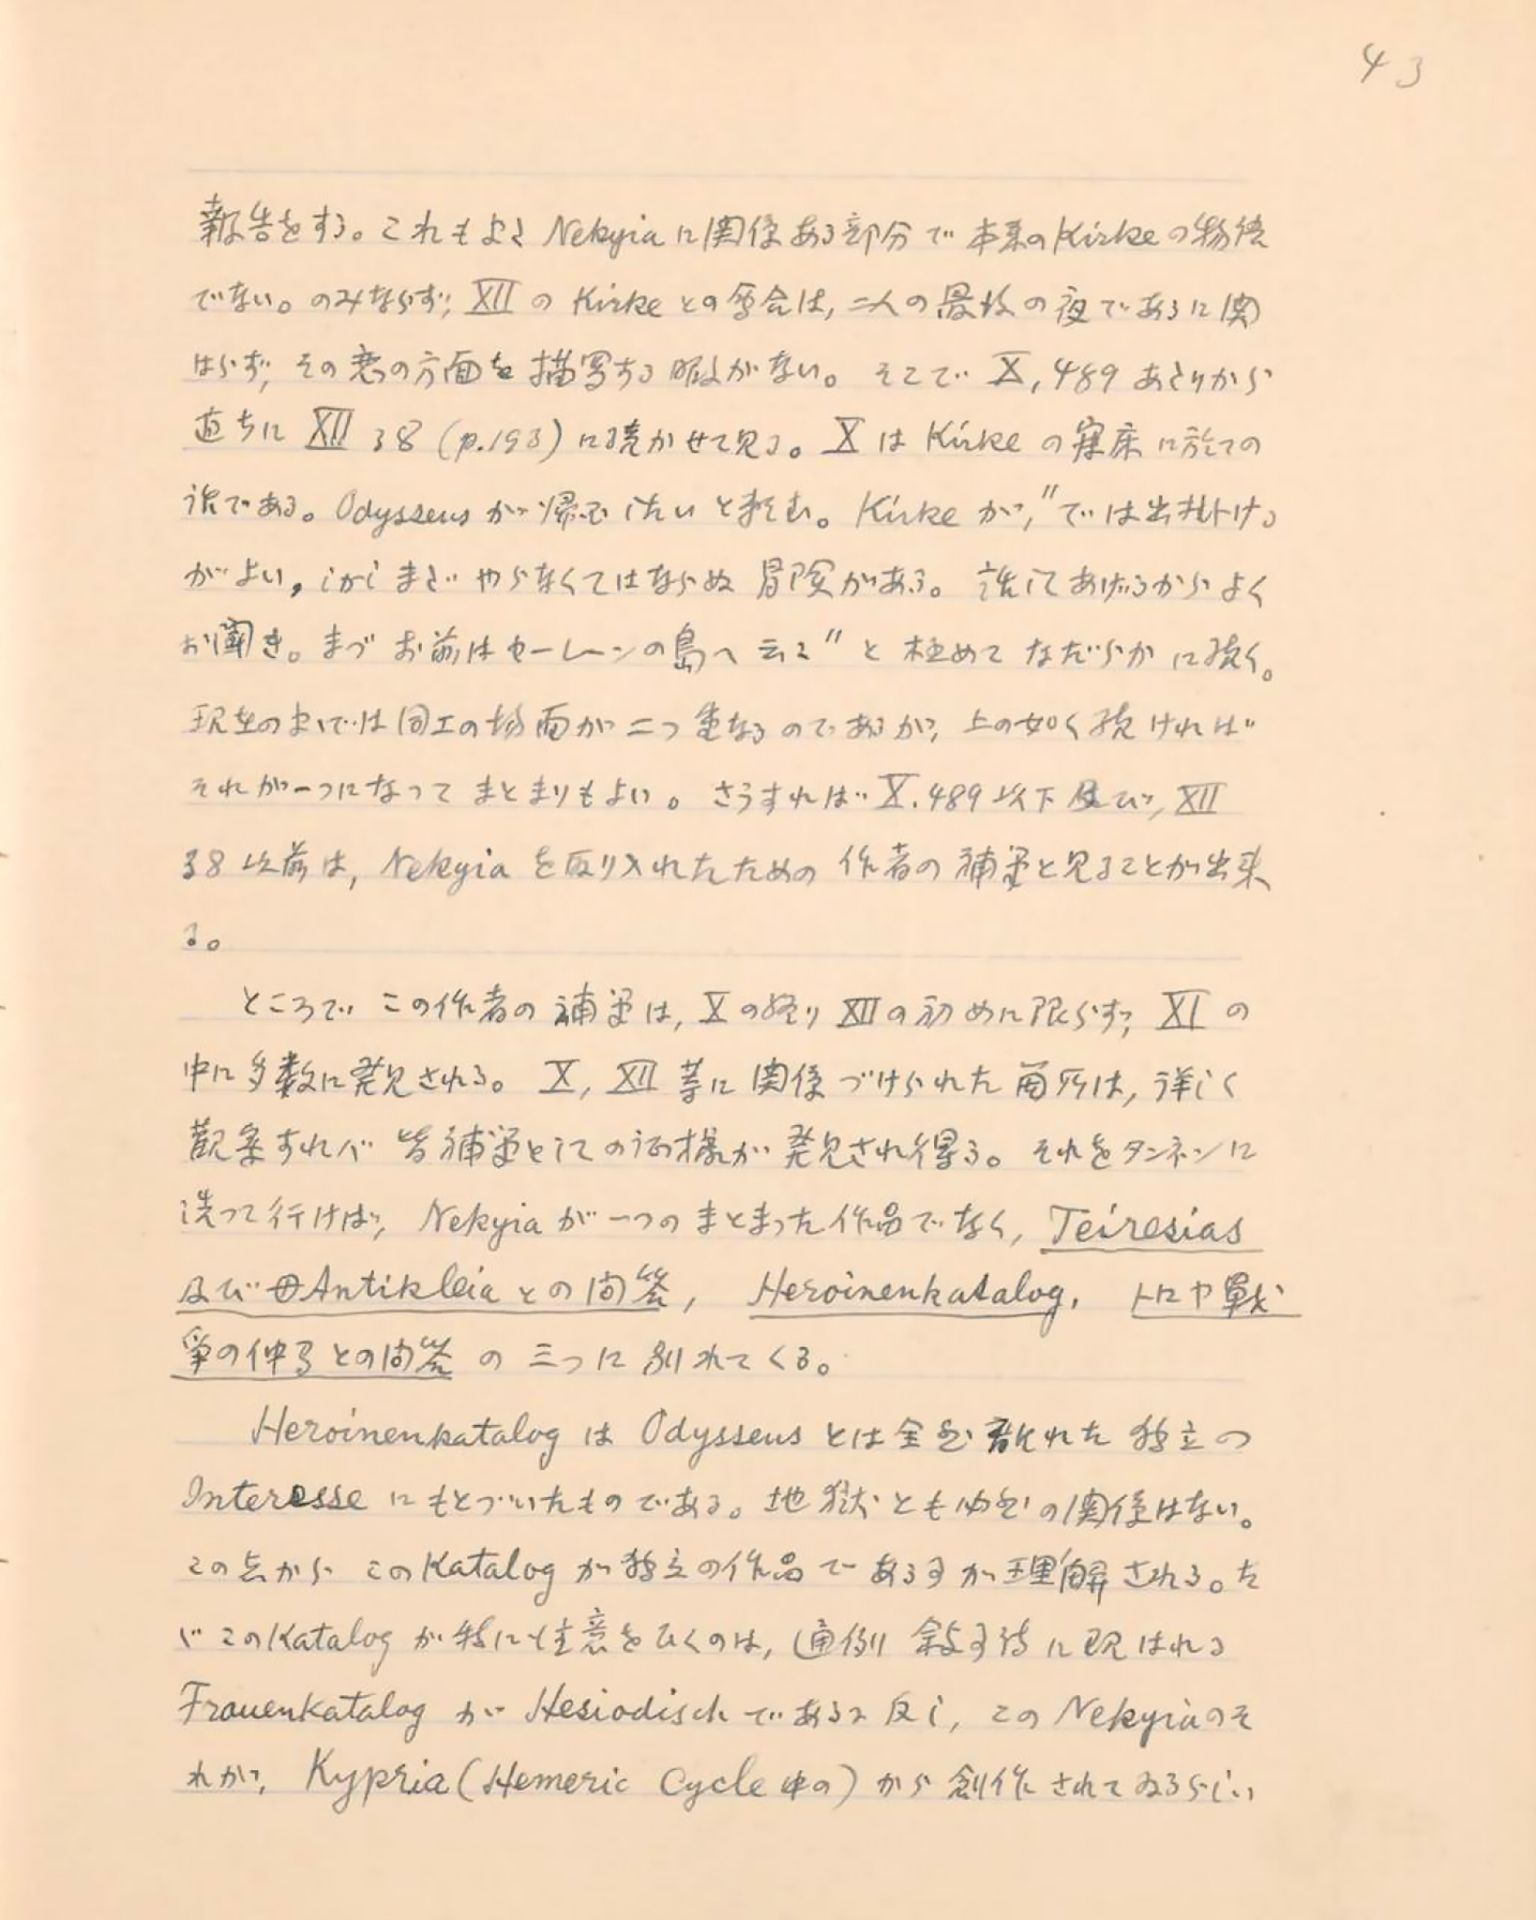 43
報告をする。これもよく Nekyia に関係ある部分で 本来の Kirke の物語
でない。のみならず, XII の Kirke との会合は, 二人の最後の夜であるに関
はらず, その恋の方面を描写する暇がない。そこで X, 489 あたりから
直ちに XII 38 (p.193) に続かせて見る。X は Kirke の寝床に於ての
話である。Odysseus が帰国したいと頼む。Kirke が, "では出掛ける
がよい, しかしまだやらなくてはならぬ冒険がある。話してあげるからよく
お聞き。まづお前はセーレーンの島へ云々" と極めてなだらかに続く。
現在のまヽでは同工の場面が二つ重なるのであるが, 上の如く続ければ
それが一つになってまとまりもよい。さうすれば X.489 以下及び, XII
38 以前は, Nekyia を取り入れたための作者の補筆と見ることが出来
る。
ところでこの作者の補筆は, X の終り XII の初めに限らず, XI の
中に多数に発見される。X, XII 等に関係づけられた箇所は, 詳しく
観察すれバ皆補筆としての模様が発見され得る。それをタンネンに
洗って行けば, Nekyia が一つのまとまった作品でなく, Teiresias
及び母Antikleia との問答, Heroinenkatalog, トロヤ戦
争の仲間との問答の三つに別れてくる。
Heroinenkatalog は Odysseus とは全然離れた独立の
Interesse にもとづいたものである。地獄とも必然の関係はない。
この点からこの Katalog が独立の作品である事が理解される。た
ゞこの Katalog が特に注意をひくのは, 通例叙事詩に現はれる
Frauenkatalog が Hesiodisch であるに反し, この Nekyia のそ
れが, Kypria (Hemeric Cycle 中の) から創作されてゐるらしい